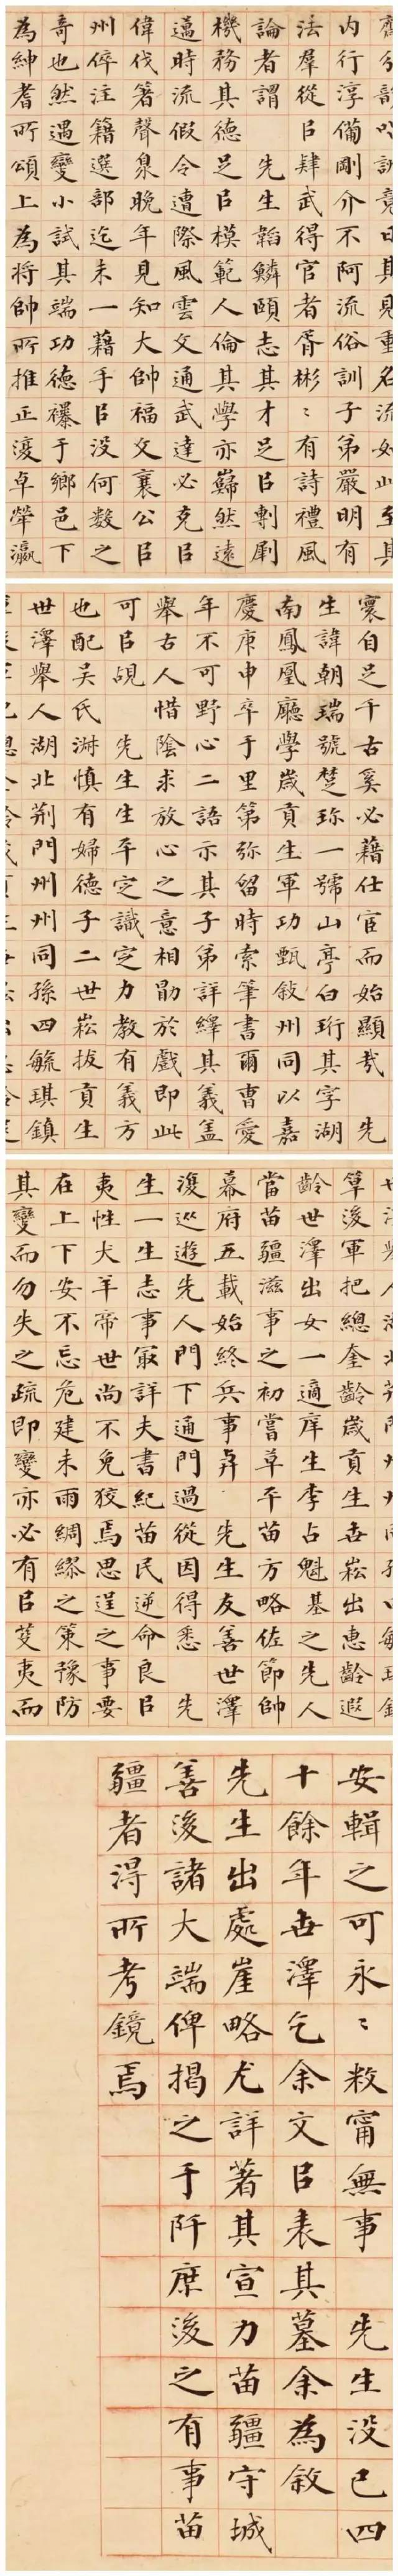 訓竟日其見重名流如此至其
内行淳備剛介不阿流俗訓子弟嚴明有
法羣從㠯肄武得官者胥彬〻有詩禮風
論者謂 先生韜鱗頤志其才足㠯剸劇
機務其德足㠯模範人倫其學亦巋然遠
邁時流假令遭際風雲文通武達必克㠯
偉伐箸聲臮晚年見知大帥福文襄公㠯
州倅注籍選部迄未一藉手㠯没何數之
奇也然遇變小試其端功德襮于鄉邑下
為紳耆所頌上為將帥所推正復卓犖瀛
寰自足千古奚必藉仕宦而始顯㦲 先
生諱朝瑞號楚珎一號山亭白珩其字湖
南鳳凰廳學歲貢生軍功甄敘州同以嘉
慶庚申卒于里第弥留時索筆書爾曹愛
年不可野心二語示其子弟詳繹其義盖
舉古人惜陰求放心之意相勖於戲即此
可㠯覘 先生生平定識定力教有義方
也配吴氏淑慎有婦德子二世崧拔貢生
世澤舉人湖北荆門州州同孫四毓琪鎮
筸後軍把總奎齡歲貢生世崧出惠齡遐
齡世澤出女一適庠生李占魁基之先人
當苗疆滋事之初嘗草平苗方略佐節帥
幕府五載始終兵事與 先生友善世澤
復遊先人門下通門過從因得悉 先
生一生志事㝡詳夫書紀苗民逆命良㠯
夷性犬羊帝世尚不免狡焉思逞之事要
在上下安不忘危建未雨綢繆之策豫防
其變而勿失之疏即變亦必有㠯芟夷而
安輯之可永〻敉甯無事 先生没已四
十餘年世澤乞余文㠯表其墓余為敘
先生出處崖略尤詳著其宣力苗疆守城
善後諸大端俾揭之于阡庶後之有事苗
疆者得所考鏡焉